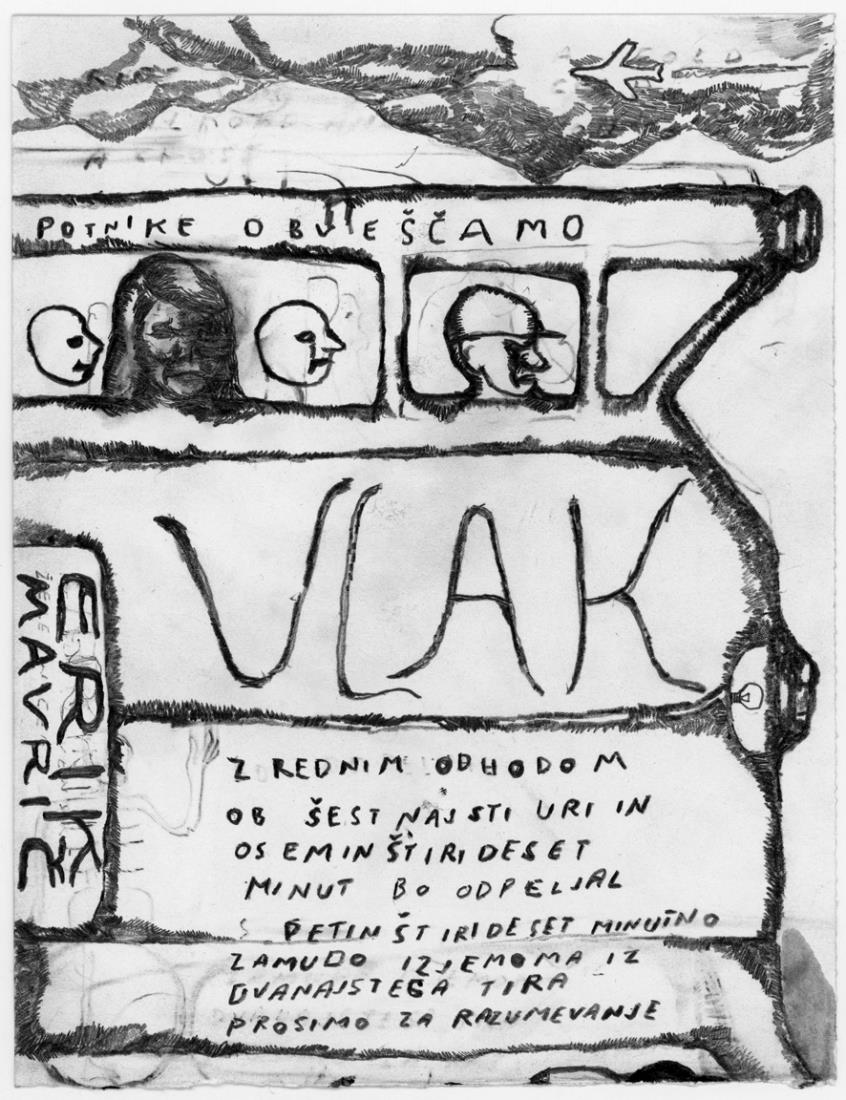 POTNIKE OBVEŠČAMO
VLAK
ERIK
MAVRIČ
Z REDNIM ODHODOM
OB ŠESTNAJSTI URI IN
OSEMINŠTIRIDESET
MINUT BO ODPELJAL
S PETINŠTIRIDESET MINUTNO
ZAMUDO IZJEMOMA IZ
DVANAJSTEGA TIRA
PROSIMO ZA RAZUMEVANJE